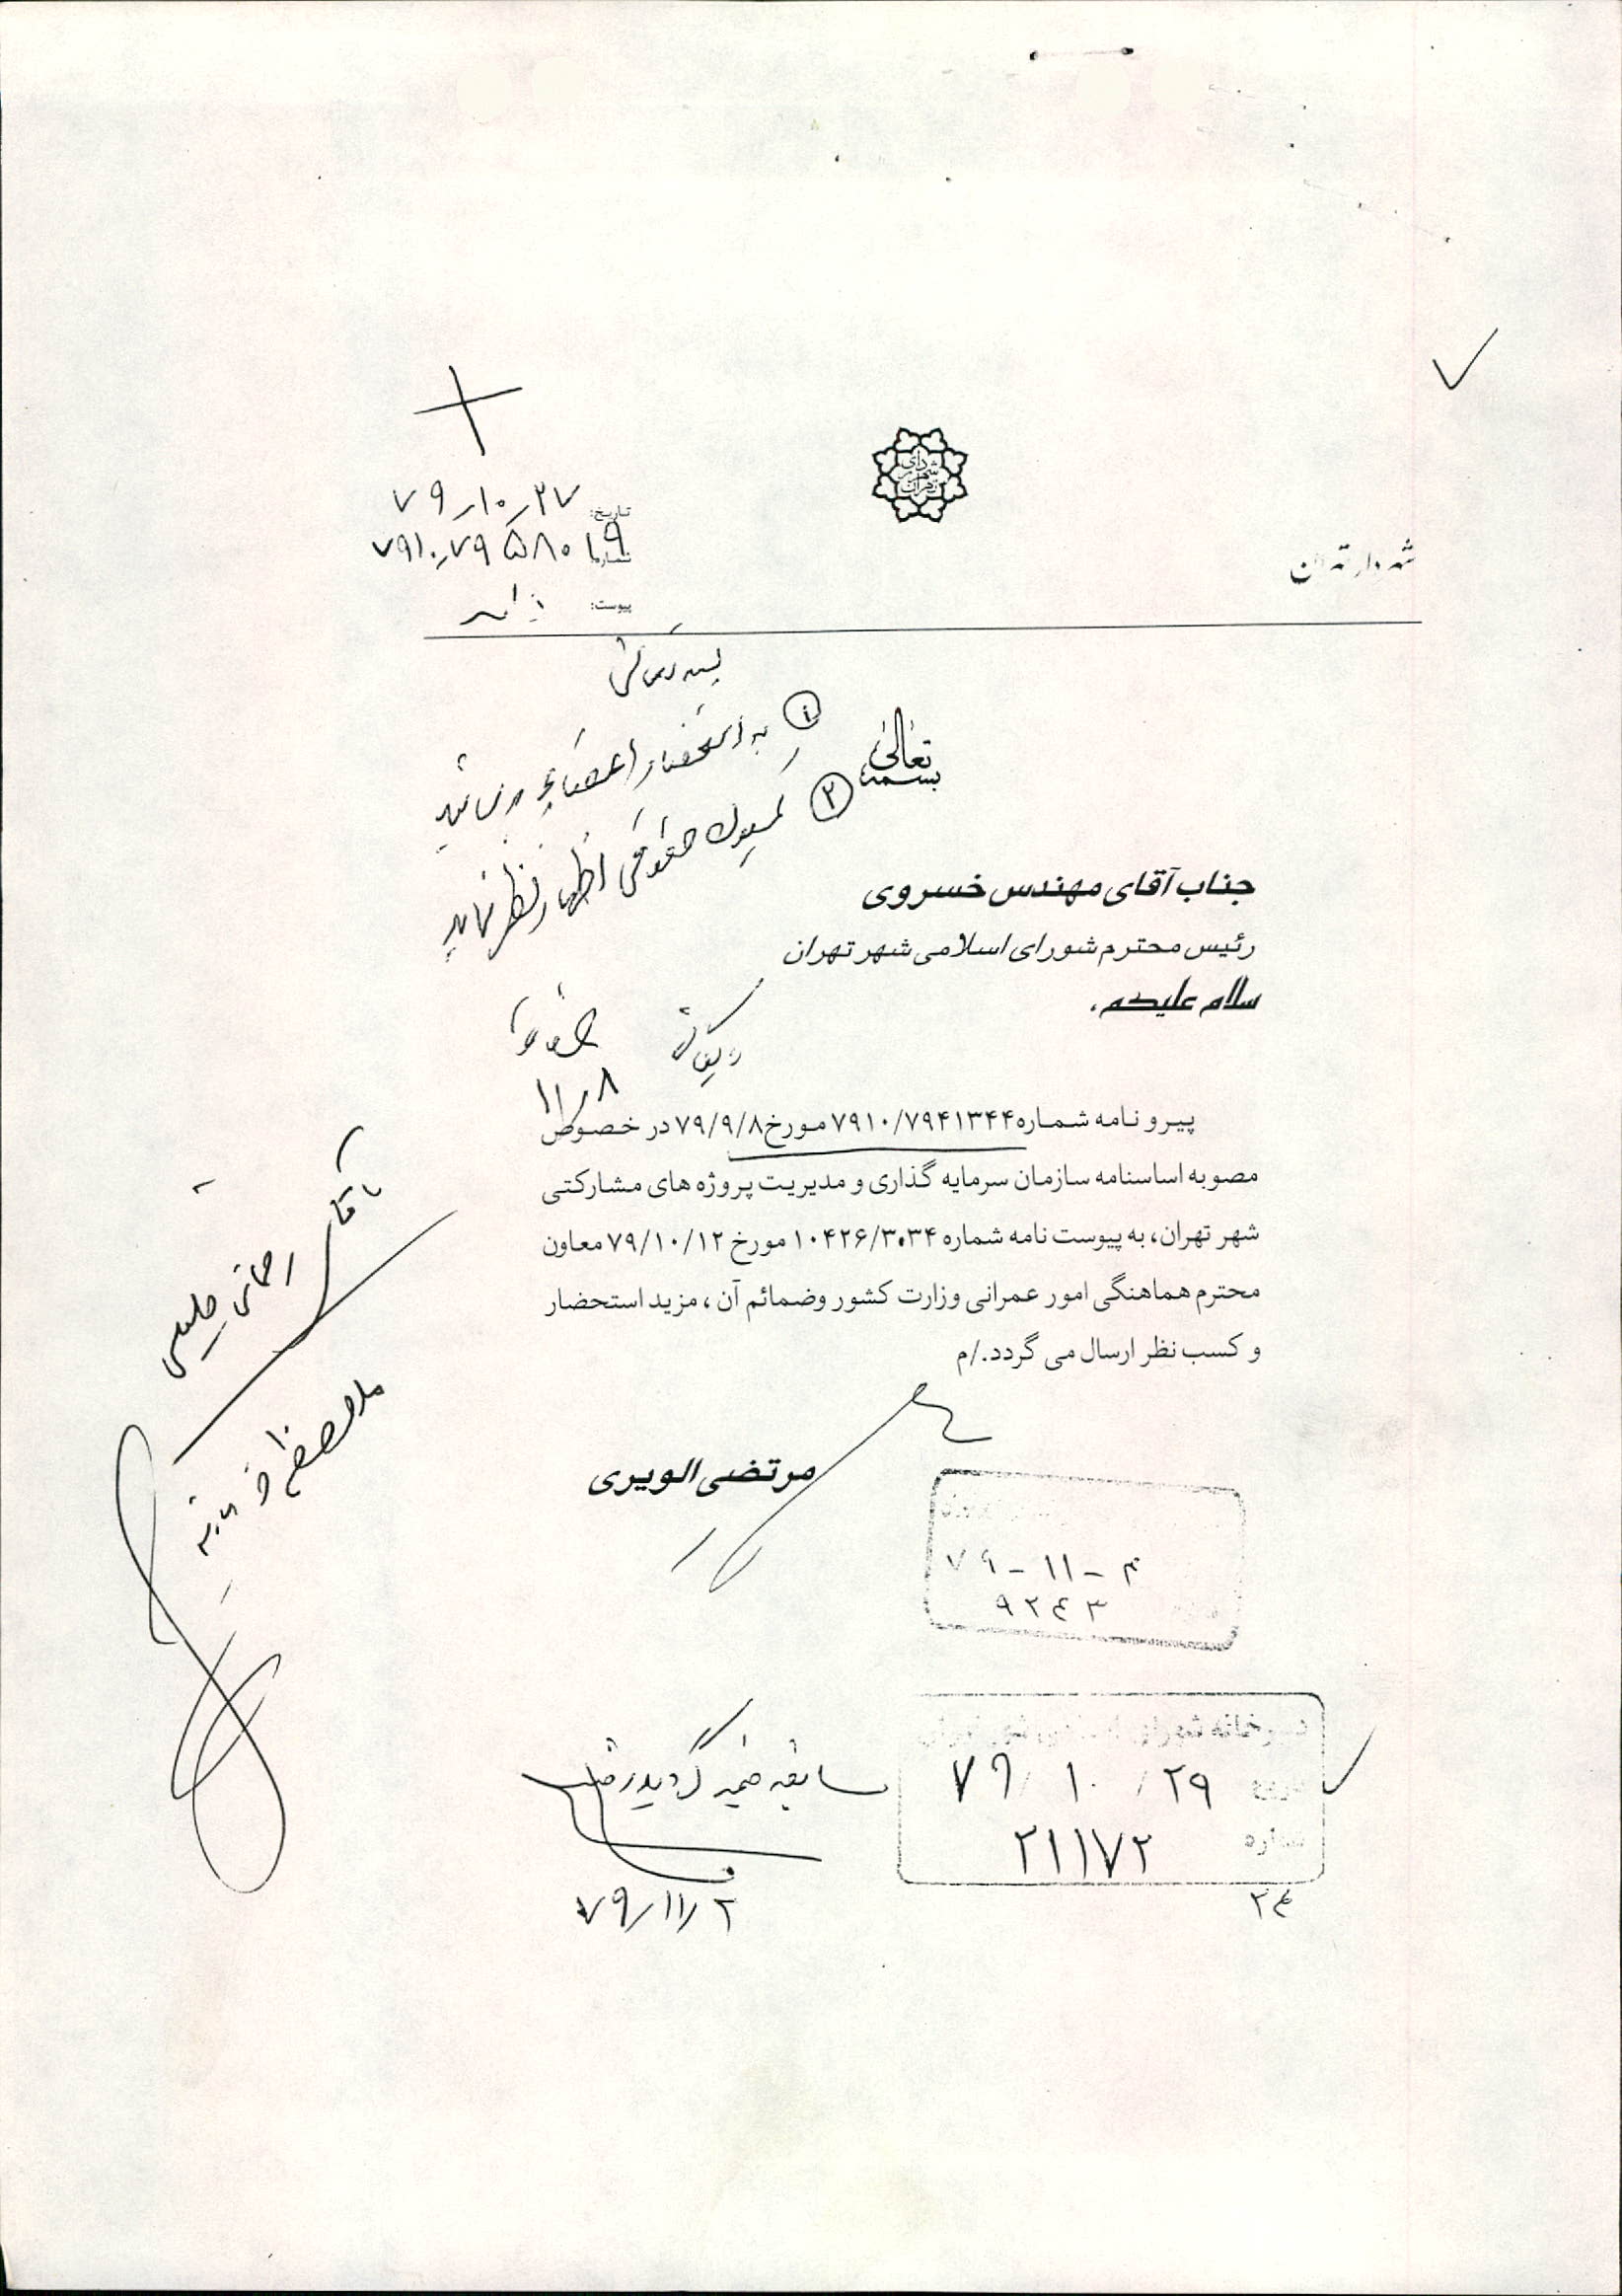 شهردار تهران
تاریخ: ۷۹-۱۰-۲۷
شماره ۷۹۱۰-۷۹۵۸۰۱۹
پیوست: دارد
بسمه تعالی
① به استحضار اعضاء برسانید
② کمیسیون حقوقی اظهار نظر نماید
۱۱/۸
جناب آقای مهندس خسروی
رئیس محترم شورای اسلامی شهر تهران
سلام علیکم.
پیرو نامه شماره ۷۹۱۰/۷۹۴۱۳۴۴ مورخ ۷۹/۹/۸ در خصوص
مصوبه اساسنامه سازمان سرمایه گذاری و مدیریت پروژه های مشارکتی
شهر تهران، به پیوست نامه شماره ۱۰۴۲۶/۳۰۳۴ مورخ ۷۹/۱۰/۱۲ معاون
محترم هماهنگی امور عمرانی وزارت کشور وضمائم آن ، مزید استحضار
و کسب نظر ارسال می گردد./م
مرتضی الویری
۷۹-۱۱-۴
۹۲۴۳
دبیرخانه شورای اسلامی شهر تهران
۷۹/۱۰/۲۹
شماره ۲۱۱۷۲
۲۴
سابقه ضمیمه گردید
۷۹/۱۱/۲